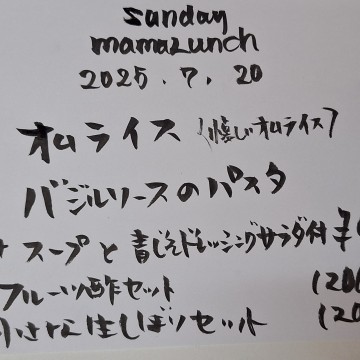 sunday
mamaLunch
2025.7.20
オムライス (懐しオムライス)
バジルソースのパスタ
スープと青じそドレッシングサラダ付 ¥
フルーツ酢セット 1200
さな生しぼりセット 120